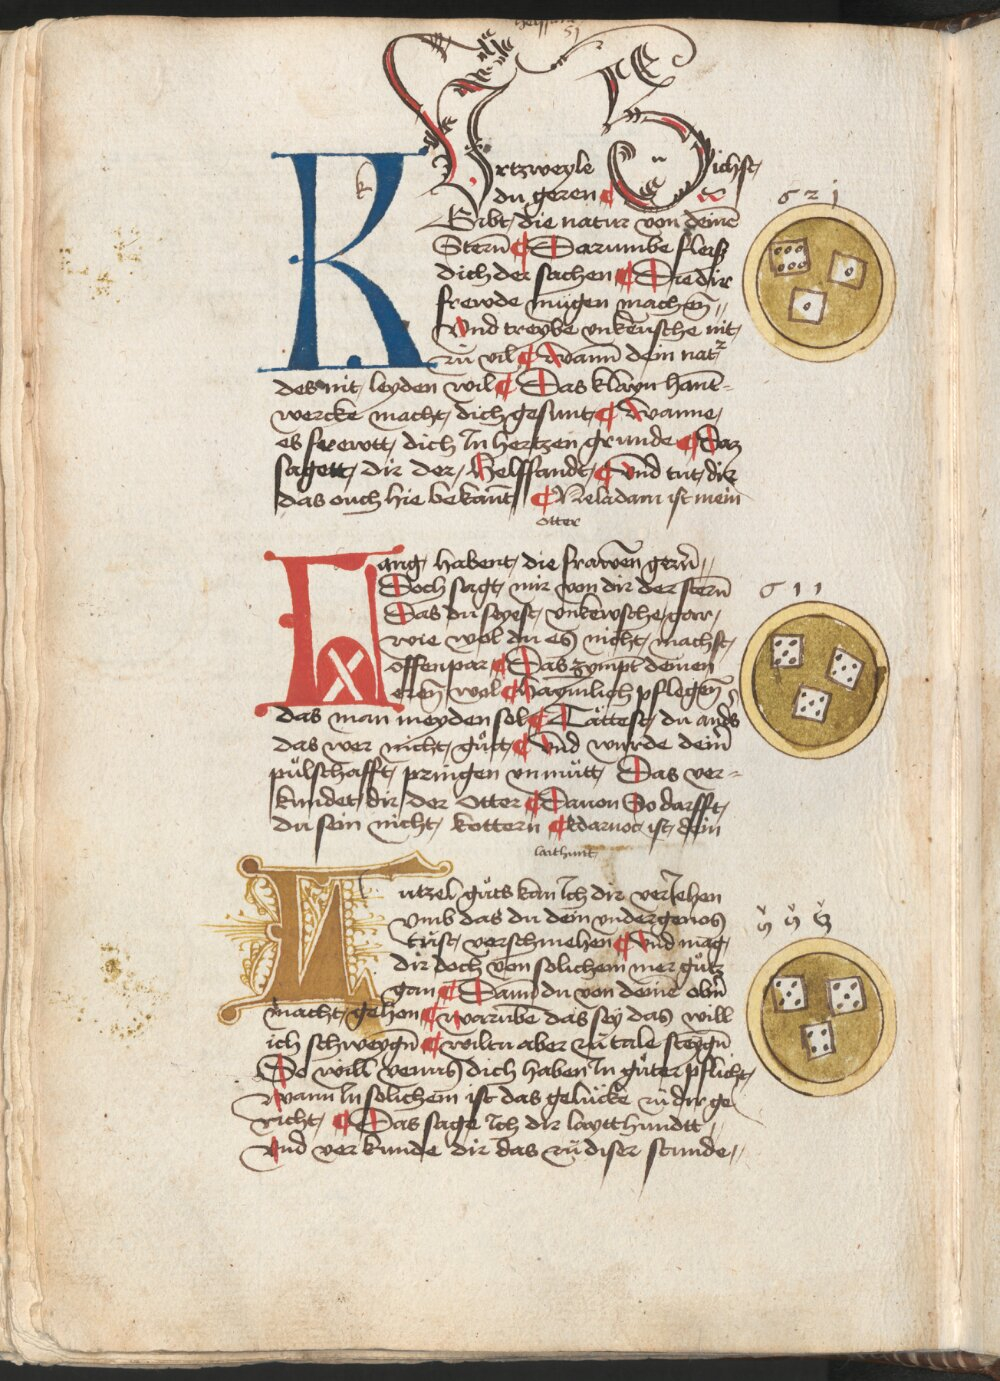 51
Kürtzweyle Sichst
du geren
Gibt die natur von deinē
Sternn Darumbe fleiß
dich der sachen Die dir
frewde mügen machen
Vnd treybe vnkeüsche nit
zü vil Wann dein nat
des nit leyden wil Das klayn hant-
wercke macht dich gesunt Wanne
es frewtt dich In hertzen grunde Daz
sagett dir der Helffandt Vnd tut dir
das ouch hie bekant Beladam ist mein
6 2 1
otter
Lang habent die frawen gern
Doch sagt mir von dir der stern
Das du seyest vnkewsche gar
wie wol du es nicht machst
offenpar Das zympt deinen
eren wol Haymlich pflegen
das man meyden sol Tättest du anders
das wer nicht gůt Vnd wurde dein
pülschafft pringen vnmütt Das ver-
kundet dir der Otter Dauon So darfft
du sein nicht kottern Aldaruoc ist dein
6 1 1
laithunt
Lutzel gůts kan Ich dir veriehen
vmb das du dein vndergenos
tüst verschmehen Vnd mag
dir doch von solichem mer gůtz
gan Dann du von deinē obern
macht gehen Warūbe das sey das will
ich schweygn wiltu aber zü tale steygn
So will venus dich haben In gůter pflicht
Wann In solichem ist das gelücke zü dir ge
richt Das sage Ich dir laytthundtt
Vnd verkunde dir das zü diser stunde
5 5 3